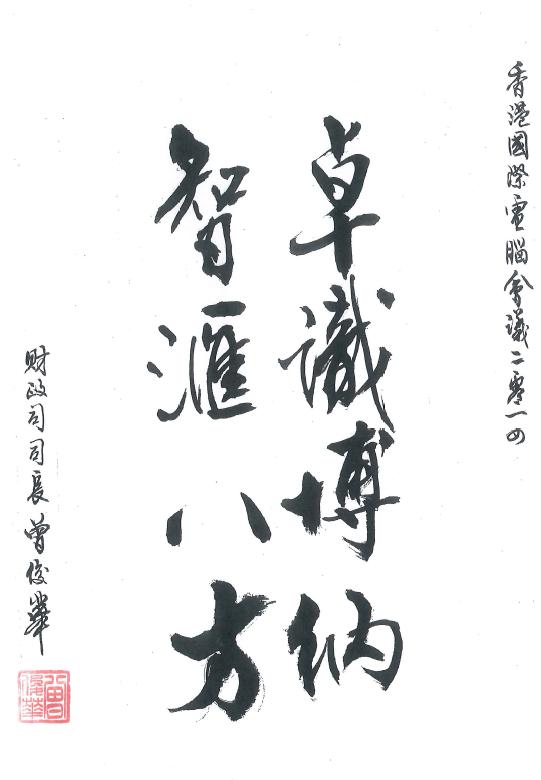 香港國際電腦會議二零一四
卓識博納
智滙八方
財政司司長曾俊華
曾俊華